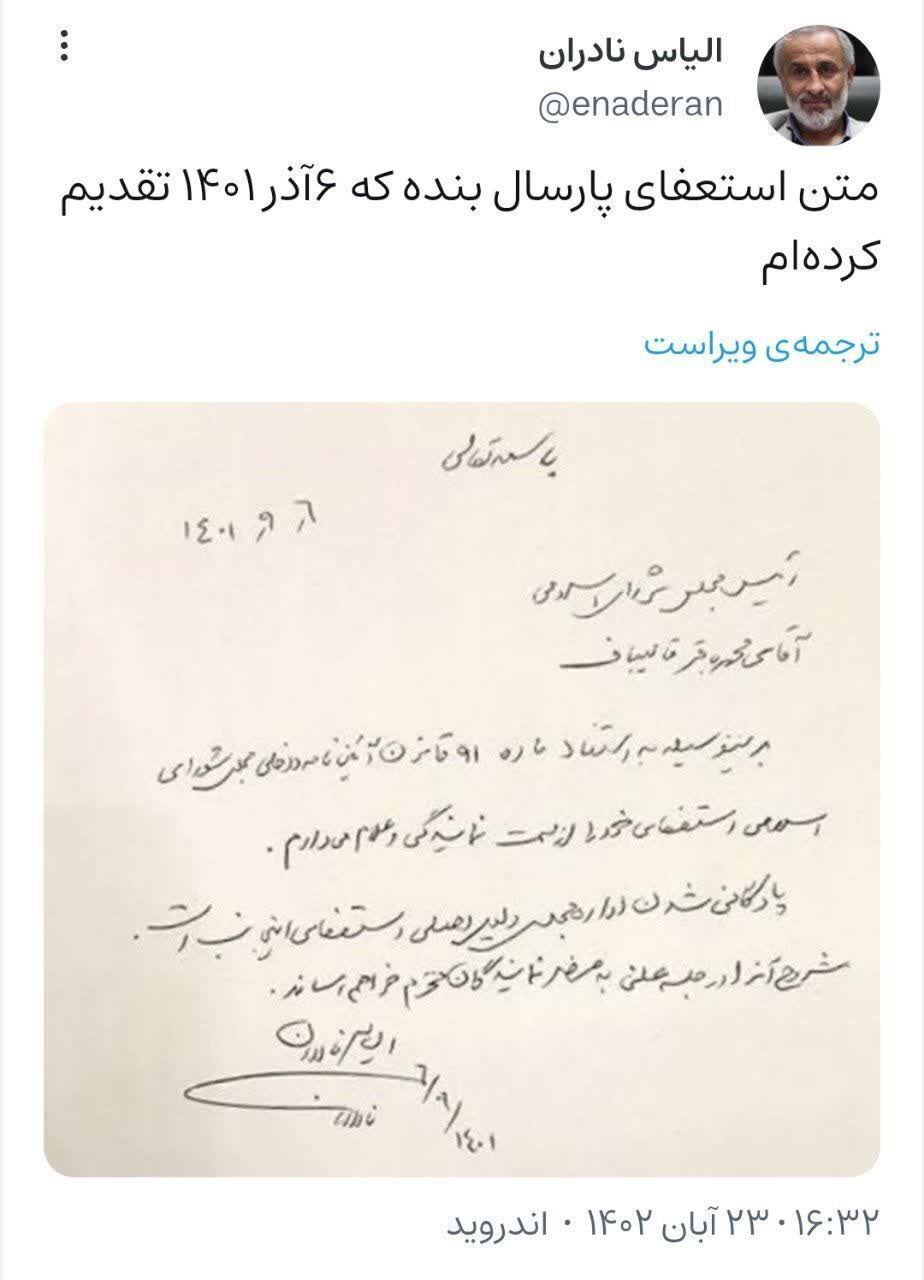 الیاس نادران
@enaderan
متن استعفای پارسال بنده که ۶آذر ۱۴۰۱ تقدیم
کرده‌ام
ترجمه‌ی ویراست
باسمه تعالی
۱۴۰۱ ,۹ ,۶
رئیس مجلس شورای اسلامی
آقای محمدباقر قالیباف
بدینوسیله به استناد ماده ۹۱ قانون آئین نامه داخلی مجلس شورای
اسلامی استعفای خود را از سمت نمایندگی اعلام می‌دارم .
پادگانی شدن اداره مجلس دلیل اصلی استعفای اینجانب است .
مشروح آنرا در جلسه علنی به محضر نمایندگان محترم خواهم رساند .
الیاس نادران
نادران
۱۴۰۱/۹/۶
۱۶:۳۲ · ۲۳ آبان ۱۴۰۲ · اندروید